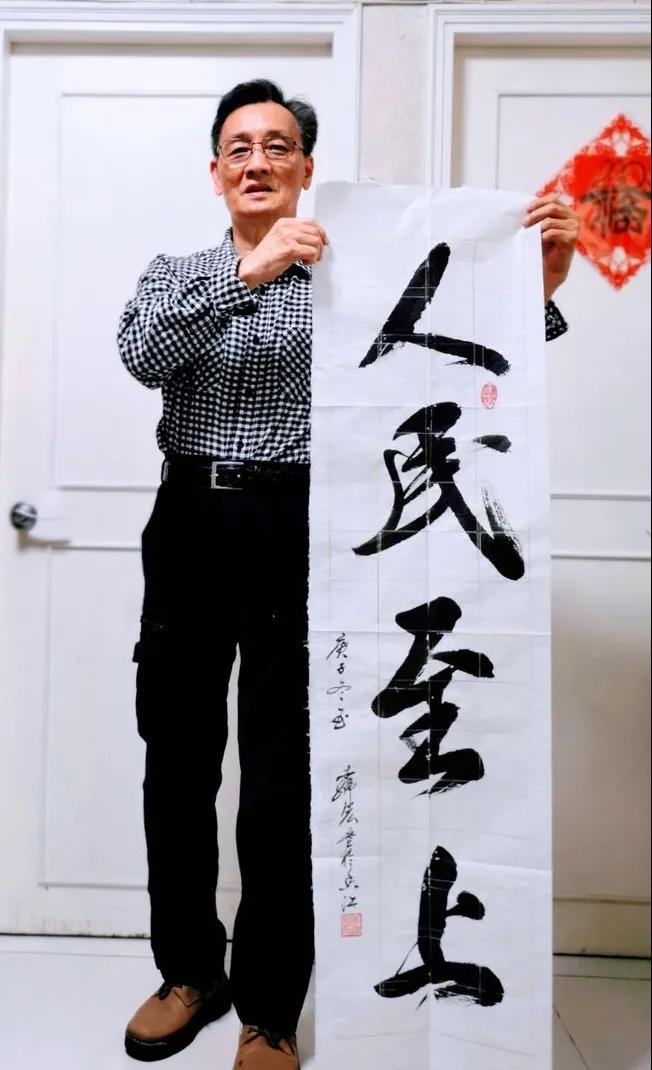 人民至上
庚子冬至
书于
江
福